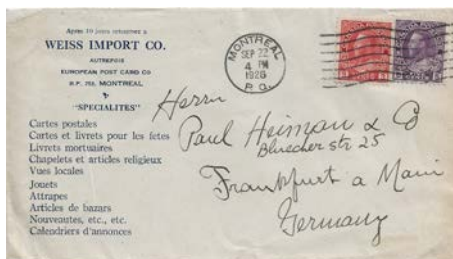 Apres 10 jours retournez a
WEISS IMPORT CO.
AUTREFOIS
EUROPEAN POST CARD CO
B.P. MONTREAL
"SPECIALITES"
Cartes postales
Cartes et livrets pour les fetes
Livrets mortuaires
Chapelets et articles religieux
Vues locales
Jouets
Attrapes
Articles de bazars
Nouveautes, etc., etc.
Calendriers d'annonces
MONTREAL
SEP 22
4 PM
1926
P.Q.
Herrn
Paul Heiman & Co
Bluecher str 25
Frankfurt a Main
Germany